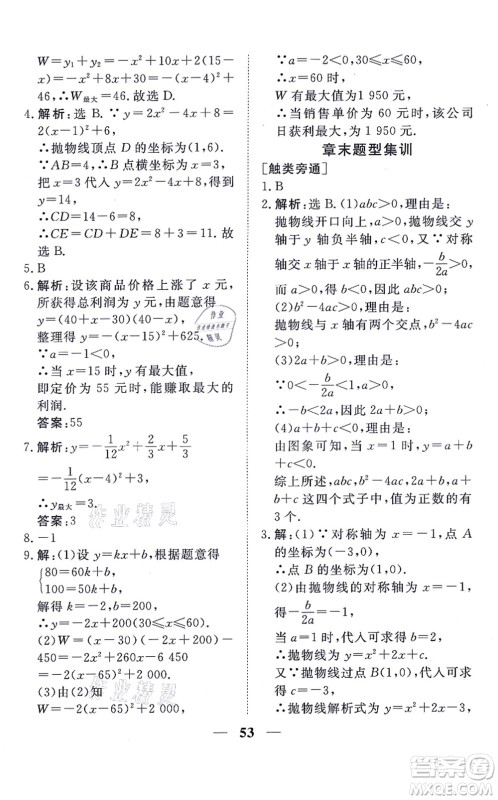 W=y₁+y₂=-x²+10x+2(15-
x)=-x²+8x+30,
∴W最大=46.故选 D.
4. 解析:∵y=2x²-4x+8=
2(x-1)²+6,
∴抛物线顶点 D 为(1,6).
∵AB=4,∴B 点横坐标为 3,
把 x=3 代入 y=2x²-4x+8 得到
y=14,
∴CD=14-6=8,
∴CE=CD+DE=8+3=11,
故选 B.
5. B
6. 解析:设该商品价格上涨了 x 元,
获得总利润 y 元,由题意得
y=(40+x-30)(40-x),
整理得 y=-(x-15)²+625,
∵a=-1<0,
∴当 x=15 时,y 有最大值,
即定价为 55 元,能赚取最大的
利润.
答案:55
7. 解析:y=-1/12x²+2/3x+5/3
=-1/12(x-4)²+3,
∴y最大=3.
答案:3
8. -1
9. 解:(1)设 y=kx+b,根据题意得
{80=60k+b,
100=50k+b,
解得:k=-2,b=200,
∴y=-2x+200(30≤x≤60).
(2)W=(x-30)(-2x+200)-
450=-2x²+260x-6 450
=-2(x-65)²+2 000.
(3)由(2)知
W=-2(x-65)²+2 000,
∵a=-2<0,30≤x≤60,
∴x=60 时,
W 有最大值为 1 950 元,
∴当销售单价为 60 元时,该公司
日获利最大,为 1 950 元.
章末题型集训
[触类旁通]
1. B
2. 解析:(1)abc>0,理由是,
抛物线开口向上,a>0,抛物线交
y 轴负半轴,c<0,又∵对称轴
轴交 x 轴的正半轴,-b/2a>0,
而 a>0,得 b<0,因此 abc>0.
(2)b²-4ac>0,理由是,
抛物线与 x 轴有两个交点,b²-
4ac>0.
(3)2a+b>0,理由是,
∵0<-b/2a<1,a>0,
∴-b<2a,因此 2a+b>0.
(4)a+b+c<0,理由是,
由图象可知,当 x=1 时,y<0;
而当 x=1 时,y=a+b+c,
即 a+b+c<0.
综上所述,abc,b²-4ac,2a+b,
a+b+c 这四个式子中,值为正数有
3 个.
3. 解:(1)∵对称轴为 x=-1,点 A
的坐标为(-3,0),
∴点 B 的坐标为(1,0).
(2)由抛物线的对称轴为 x=-1,
得-b/2a=-1,
∵a=1,∴b=2,
∴抛物线为 y=x²+2x+c,
又∵抛物线过点 B(1,0),
∴1+2+c=0,∴c=-3,
∴抛物线解析式为 y=x²+2x-3.
又∵抛物线与 y 轴交于点 C,
53
作业精灵
作业精灵
答案圈
MXQE.COM